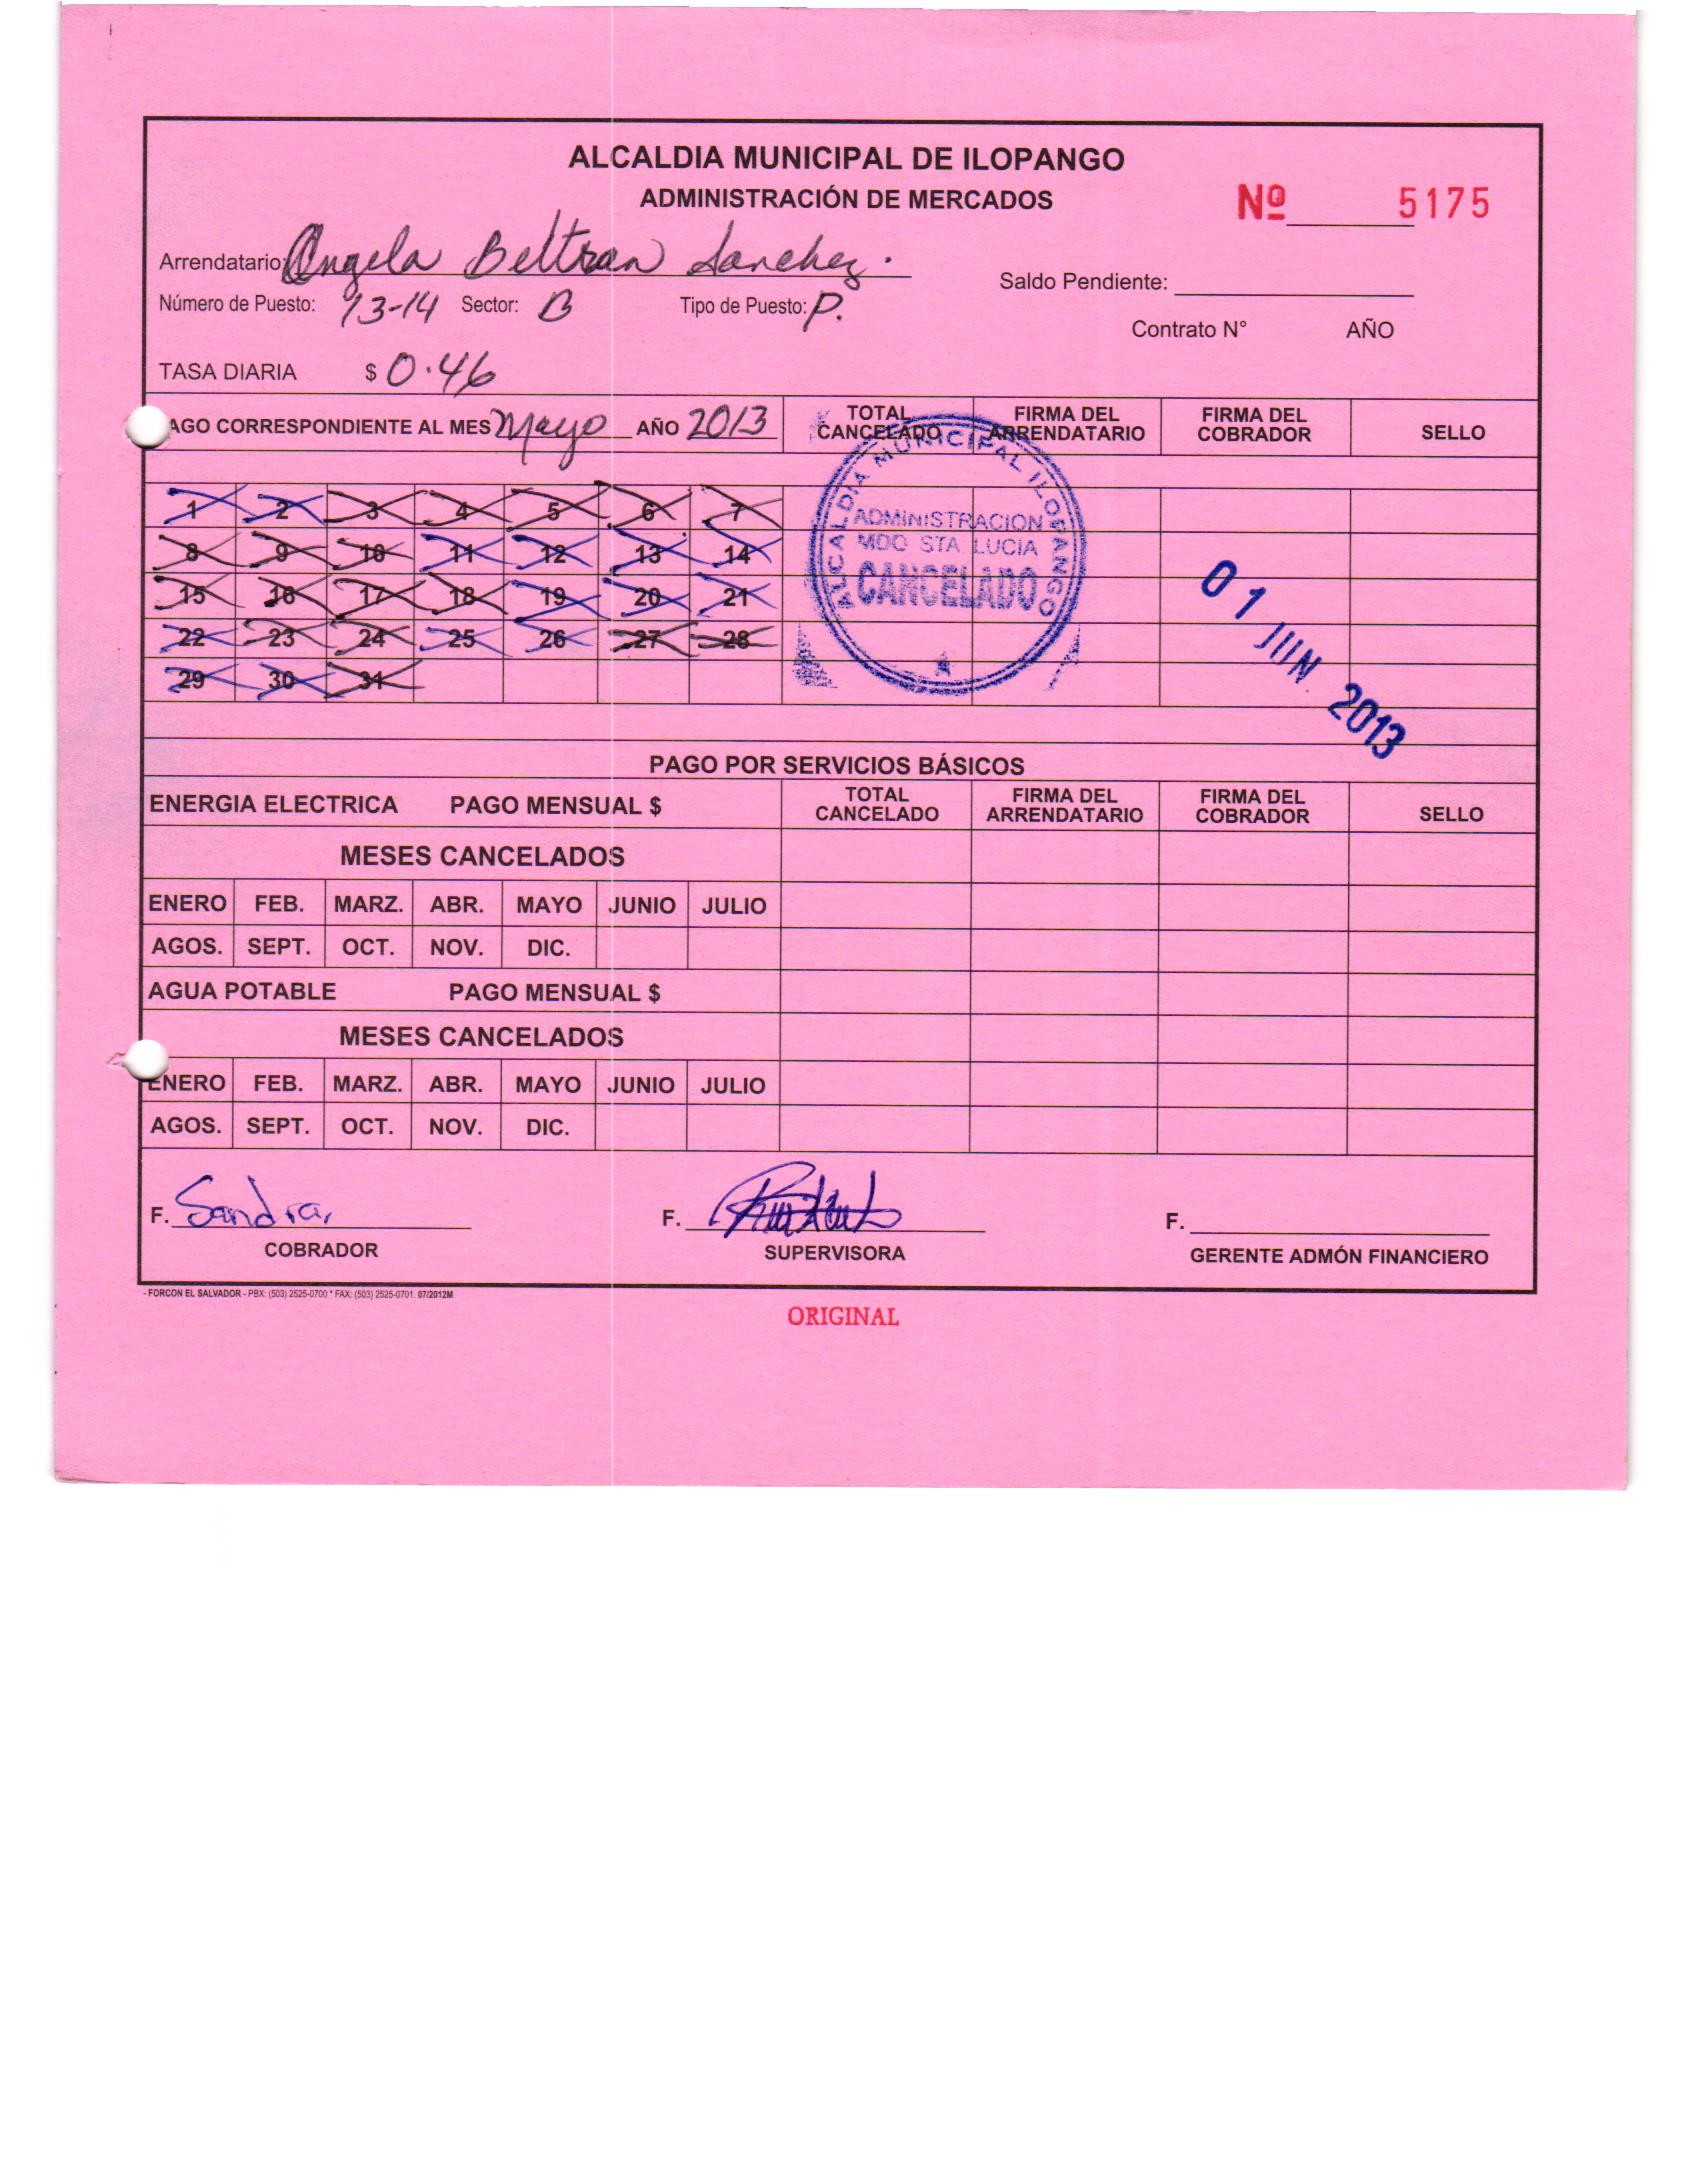 ALCALDIA MUNICIPAL DE ILOPANGO
ADMINISTRACIÓN DE MERCADOS
Nº 5175
Arrendatario: Angela Beltran Sanchez.
Saldo Pendiente:
Número de Puesto: 13-14 Sector: B Tipo de Puesto: P.
Contrato N° AÑO
TASA DIARIA $ 0.46
AGO CORRESPONDIENTE AL MES Mayo AÑO 2013
TOTAL CANCELADO FIRMA DEL ARRENDATARIO FIRMA DEL COBRADOR SELLO
1 2 3 4 5 6 7
8 9 10 11 12 13 14
15 16 17 18 19 20 21
22 23 24 25 26 27 28
29 30 31
ALCALDIA MUNICIPAL ILOPANGO
ADMINISTRACION
MDO STA LUCIA
CANCELADO
01 JUN 2013
PAGO POR SERVICIOS BÁSICOS
ENERGIA ELECTRICA PAGO MENSUAL $
TOTAL CANCELADO FIRMA DEL ARRENDATARIO FIRMA DEL COBRADOR SELLO
MESES CANCELADOS
ENERO FEB. MARZ. ABR. MAYO JUNIO JULIO
AGOS. SEPT. OCT. NOV. DIC.
AGUA POTABLE PAGO MENSUAL $
MESES CANCELADOS
ENERO FEB. MARZ. ABR. MAYO JUNIO JULIO
AGOS. SEPT. OCT. NOV. DIC.
F. Sandra F. F.
COBRADOR SUPERVISORA GERENTE ADMÓN FINANCIERO
- FORCON EL SALVADOR - PBX: (503) 2525-0700 * FAX: (503) 2525-0701. 07/2012M
ORIGINAL